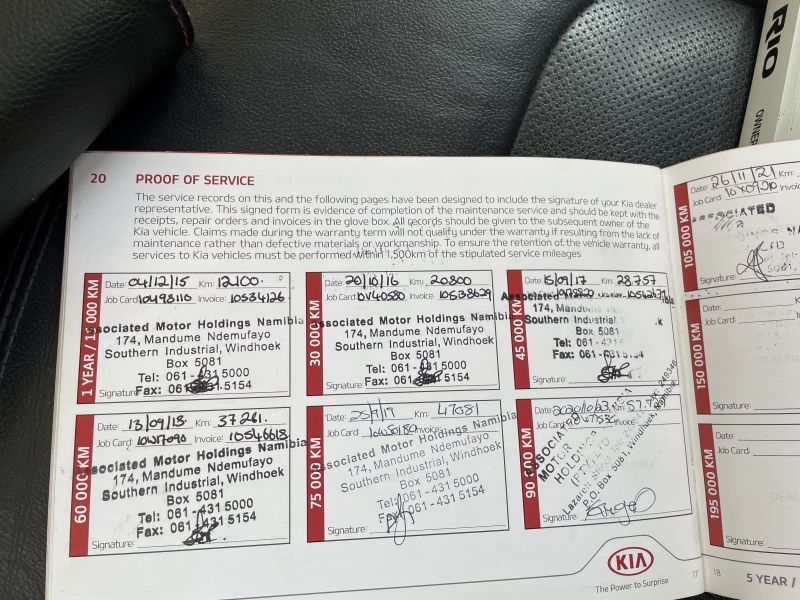 20 PROOF OF SERVICE
The service records on this and the following pages have been designed to include the signature of your Kia dealer
representative. This signed form is evidence of completion of the maintenance service and should be kept with the
receipts, repair orders and invoices in the glove box. All records should be given to the subsequent owner of the
Kia vehicle. Claims made during the warranty term will not qualify under the warranty if resulting from the lack of
maintenance rather than defective materials or workmanship. To ensure the retention of the vehicle warranty, all
services to Kia vehicles must be performed within 1,500km of the stipulated service mileages
1 YEAR / 15 000 KM
Date: 04/12/15 Km: 12100.
Job Card: 10498110 Invoice: 10534126
Associated Motor Holdings Namibia
174, Mandume Ndemufayo
Southern Industrial, Windhoek
Box 5081
Tel: 061-431 5000
Fax: 061 431 5154
Signature:
30 000 KM
Date: 20/10/16 Km: 20800
Job Card: Invoice: 10538629
Associated Motor Holdings Namibia
174, Mandume Ndemufayo
Southern Industrial, Windhoek
Box 5081
Tel: 061-431 5000
Fax: 061 431 5154
Signature:
45 000 KM
Date: 15/09/17 Km: 28757
Associated
174, Mandume
Southern Industrial
Box 5081
Tel: 061
Fax: 061
Signature:
60 000 KM
Date: 13/09/18. Km: 37261.
Job Card: Invoice: 10546618
Associated Motor Holdings Namibia
174, Mandume Ndemufayo
Southern Industrial, Windhoek
Box 5081
Tel: 061-431 5000
Fax: 061 431 5154
Signature:
75 000 KM
Date: 25/9/19 Km: 47081
Job Card: Invoice:
Associated Motor Holdings Namibia
174, Mandume Ndemufayo
Southern Industrial, Windhoek
Box 5081
Tel: 061-431 5000
Fax: 061 431 5154
Signature:
90 000 KM
Date: 2020/10/23 Km:
Job Card:
ASSOCIATED
MOTOR
HOLDINGS
(PTY) LTD
P.O. Box 5081, Windhoek, Namibia
Signature:
KIA
The Power to Surprise
17
18
105 000 KM
Date: 26/11/21 Km:
Job Card:
ASSOCIATED
Signature:
150 000 KM
Date:
Job Card:
DEALER
Signature:
195 000 KM
Date:
Job Card:
Signature:
5 YEAR /
RIO
OWNER